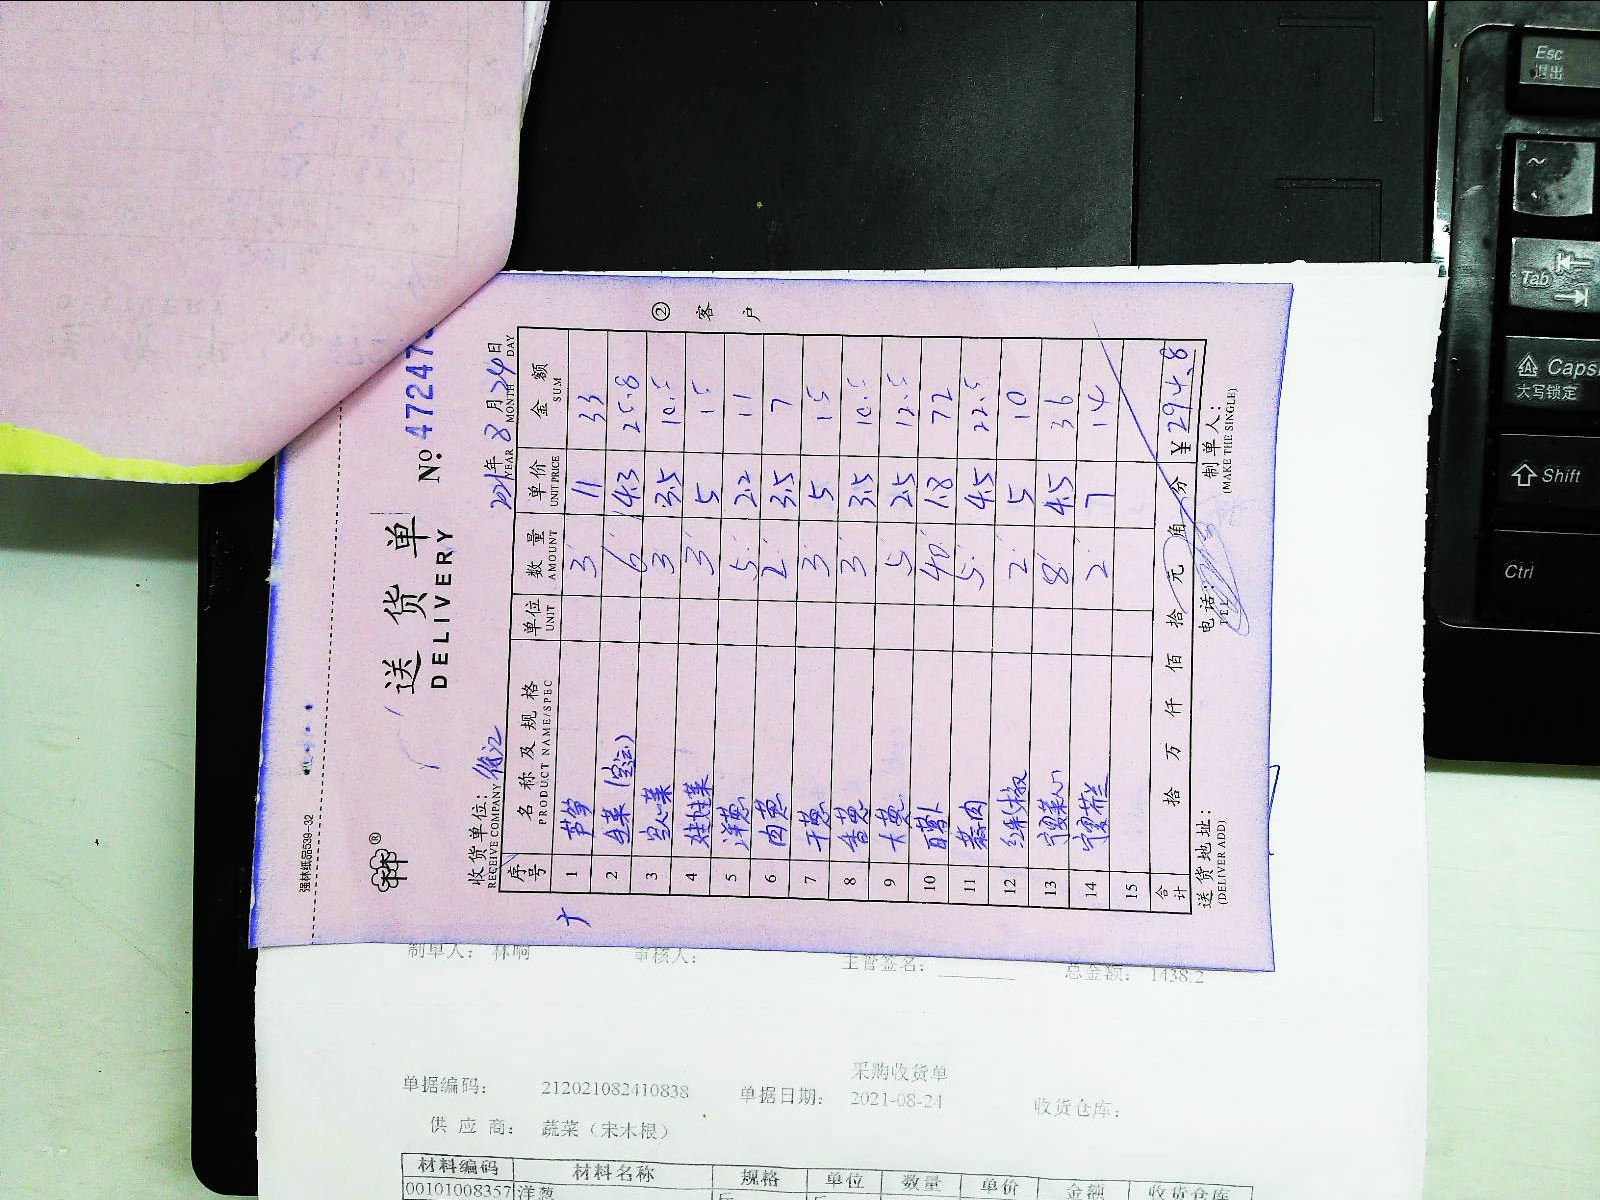 强林纸品539-32
送货单
DELIVERY
№ 472473
收货单位：
RECEIVE COMPANY
2021年 8 月 24 日
YEAR MONTH DAY
② 客户
序号 名称及规格 单位 数量 单价 金额
PRODUCT NAME/SPEC UNIT AMOUNT UNIT PRICE SUM
1 芦笋 3 11 33
2 生菜 6 4.3 25.8
3 空心菜 3 3.5 10.5
4 娃娃菜 3 5 15
5 洋葱 5 2.2 11
6 肉葱 2 3.5 7
7 干葱 3 5 15
8 香葱 3 3.5 10.5
9 大葱 5 2.5 12.5
10 白萝卜 40 1.8 72
11 蒜肉 5 4.5 22.5
12 红米椒 2 5 10
13 宁夏菜心 8 4.5 36
14 宁夏芥兰 2 7 14
15
合计 拾 万 仟 佰 拾 元 角 分 ¥294.8
送货地址： 电话： 制单人：
(DELIVER ADD) TEL (MAKE THE SINGLE)
制单人： 林响 审核人： 主管签名： 总金额： 1438.2
采购收货单
单据编码： 212021082410838 单据日期： 2021-08-24 收货仓库：
供应商： 蔬菜（宋木根）
材料编码 材料名称 规格 单位 数量 单价 金额 收货仓库
00101008357 洋葱
Esc
退出
~
Tab
Caps
大写锁定
Shift
Ctrl